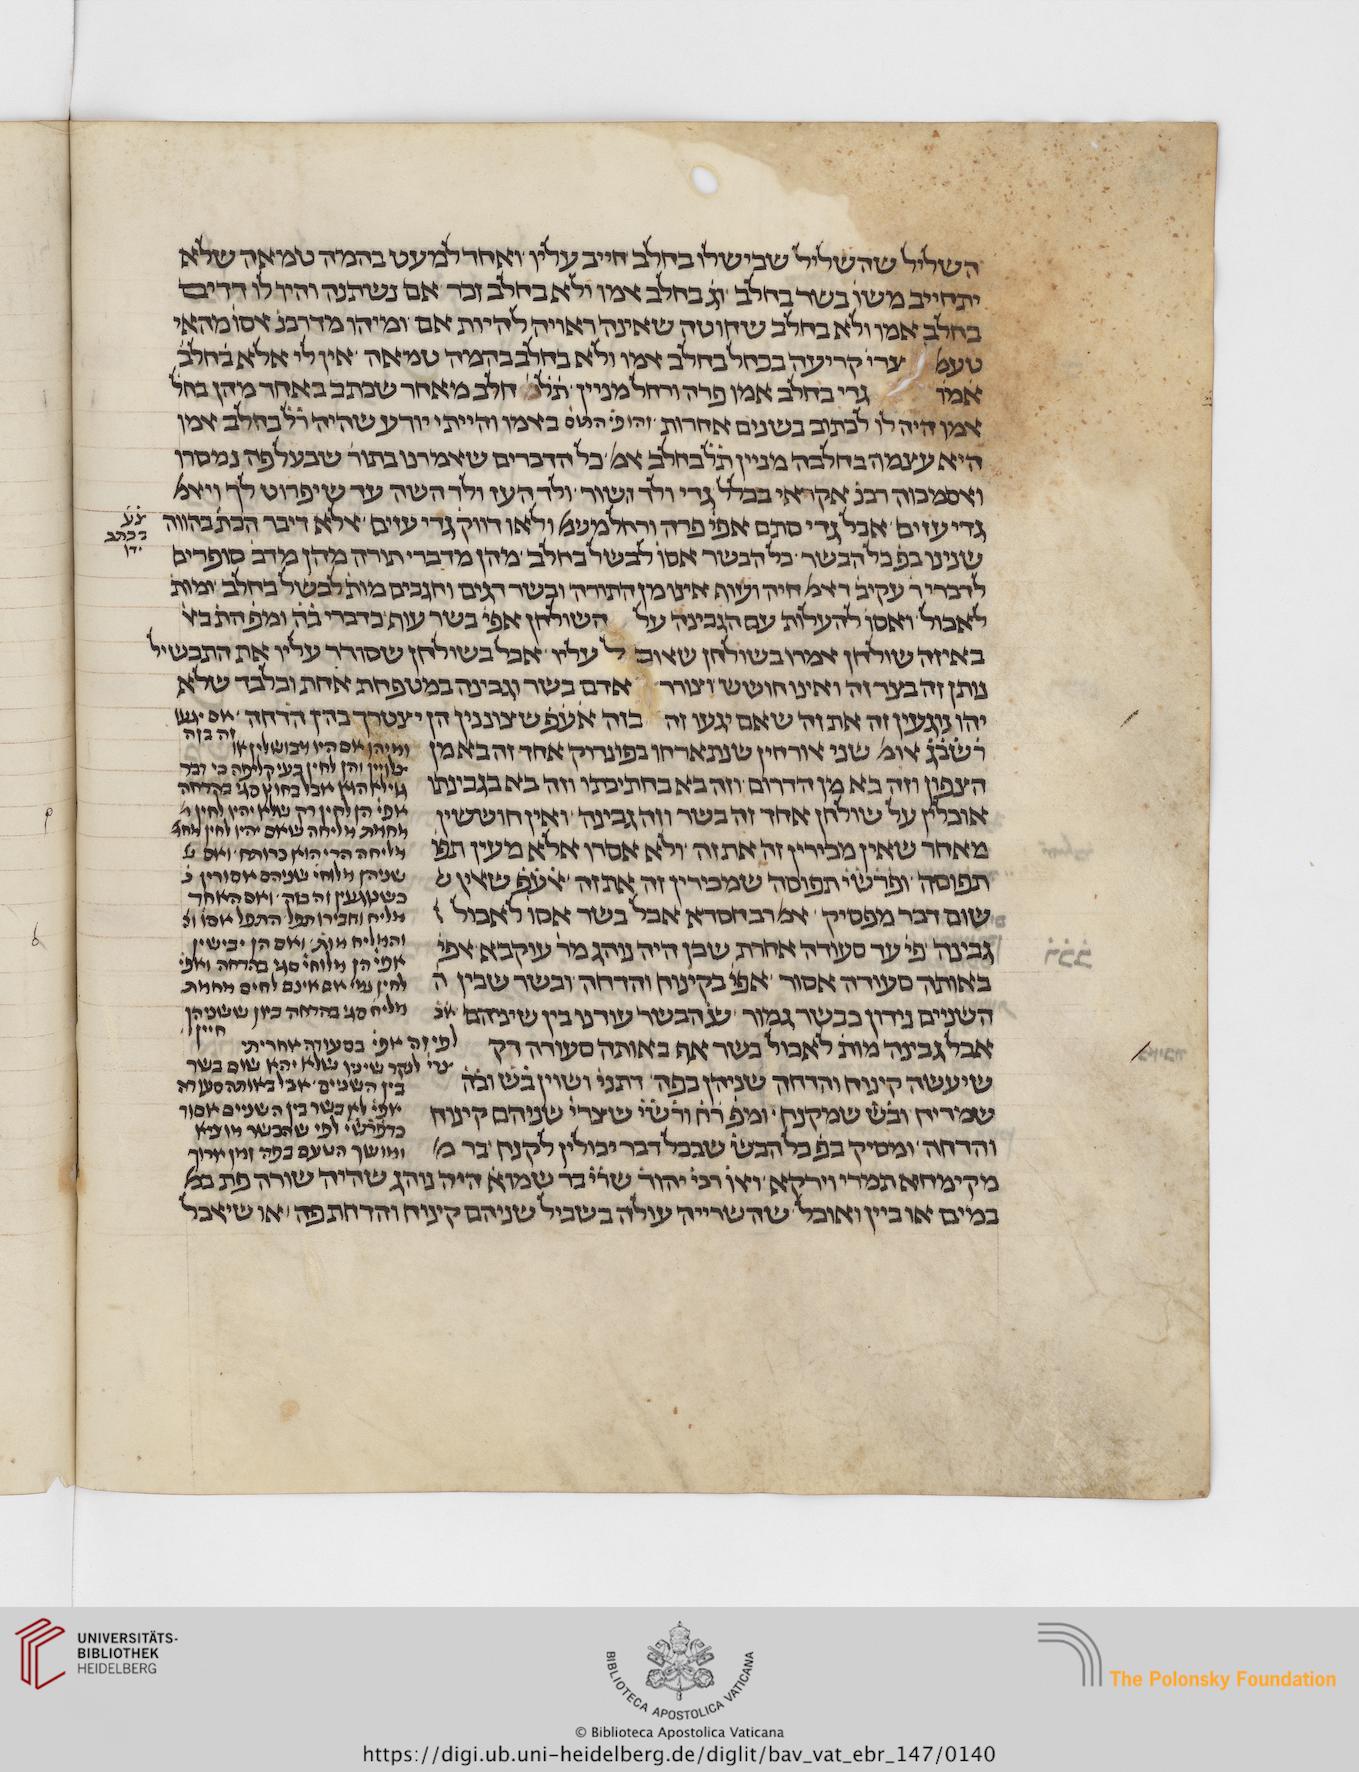 השליל שהשליל שבישלו בחלב חייב עליו ואחד למעט בהמה טמאה שלא
יתחייב משו בשר בחלב וג בחלב אמו ולא בחלב זכר אם נשתנה והיו לו דדים
בחלב אמו ולא בחלב שחוטה שאינה ראויה להיות אם ומיהו מדרבנ אסו מהאי
טעמ צרי קריעה בכחל בחלב אמו ולא בחלב בהמה טמאה אין לי אלא בחלב
אמו גדי בחלב אמו פרה ורחל מניין תל חלב מאחר שכתב באחד מהן בחל
אמו היה לו לכתוב בשנים אחרות באמו והייתי יודע שהיה רל בחלב אמו
היא עצמה בחלבה מניין תל בחלב אמ כל הדברים שאמרנו בתור שבעל פה נמסרו
ואסמכוה רבנ אקראי בכלל גדי ולד ושור ולד העז ולד השה עד שיפרוט לך ויאמ
גדי עזים אבל גדי סתם אפי פרה ורחל במשמ ולאו דווק גדי עזים אלא דיבר הכת בהווה
שנינו בפ כל הבשר כל הבשר אסו לבשל בחלב מהן מדברי תורה מהן מדב סופרים
לדברי ר עקיב דאמ חיה ועוף אינו מן התורה ובשר דגים וחגבים מות לבשל בחלב ומות
לאכול ואסו להעלות עם הגבינה על השולחן אפי בשר עוף כדברי בה ומפ הת בא
באיזה שולחן אמרו בשולחן שאוכ ל עליו אבל בשולחן שסודר עליו את התבשיל
נותן זה בצד זה ואינו חושש וצורר אדם בשר וגבינה במטפחת אחת ובלבד שלא
יהו נוגעין זה את זה שאם יגעו זה בזה אעפ שצוננין הן יצטרך בהן הדחה אם יגעו
זה בזה
רשבג אומ שני אורחין שנתארחו בפונדוק אחד זה בא מן
הצפון וזה בא מן הדרום וזה בא בחתיכתו וזה בא בגבינתו
אוכלין על שולחן אחד זה בשר וזה גבינה ואין חוששין
מאחר שאין מכירין זה את זה ולא אסרו אלא מעין תפו
תפוסה ופרשי תפוסה שמכירין זה את זה אעפ שאין
שום דבר מפסיק אמ רב חסדא אכל בשר אסו לאכול
גבינה פי עד סעודה אחרת שכן היה נוהג מר עוקבא אפי
באותה סעודה אסור אפי בקינוח והדחה ובשר שבין ה
השניים נידון כבשר גמור שנ הבשר עודנו בין שיניהם
אבל גבינה מות לאכול בשר אף באותה סעודה רק
שיעשה קינוח והדחה שניהן בפה דתני ושוין בש ובה
שמדיח ובש שמקנח ומפ רח ורשי שצרי שניהם קינוח
והדחה ומסיק בפ כל הבש שבכל דבר יכולין לקנח בר מ
מקימחא תמרי וירקא ואו רבי יהוד שרי בר שמוא היה נוהג שהיה שורה פת
במים או ביין ואוכל שהשרייה עולה בשביל שניהם קינוח והדחת פה או שיאכל
צע
בכתב
ידו
ומיהן אם היו מבושלין או
אפי הן לחין רק שלא יהיו לחין
מחמת מליחה שאם יהיו לחין
מליחה הרי הוא כרותח ואם
שניהן מלוחי שניהם אסורין
כשנוגעין זה בזה ואם האחד
מליח וחבירו תפל התפל אסו
והמליח מות ואם הן יבישין
אפי הן מלוחי סגי בהדחה ואפי
לחין אם אינם לחים מחמת
מליח סגי בהדחה כיון ששניהן
לפי זה אפי בסעודה אחריתי
צרי לנקר שיניו שלא יהא שום בשר
בין השניים אבל באותה סעודה
אפי לא בשר בין השניים אסור
כדפרשי לפי שהבשר מוציא
ומושך הטעם בפה זמן אריך
UNIVERSITÄTS-
BIBLIOTHEK
HEIDELBERG
BIBLIOTECA APOSTOLICA VATICANA
The Polonsky Foundation
© Biblioteca Apostolica Vaticana
https://digi.ub.uni-heidelberg.de/diglit/bav_vat_ebr_147/0140